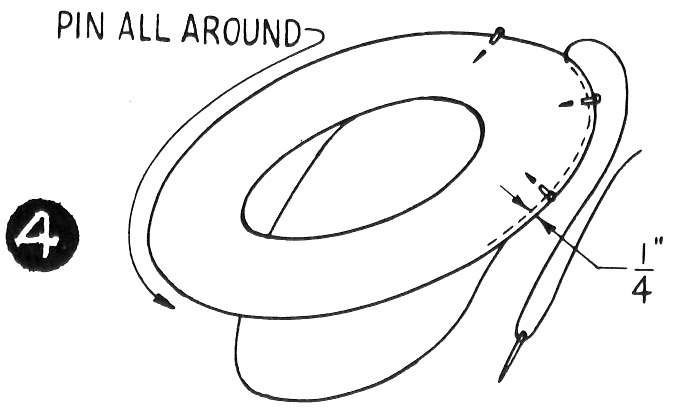 PIN ALL AROUND
4
1/4"